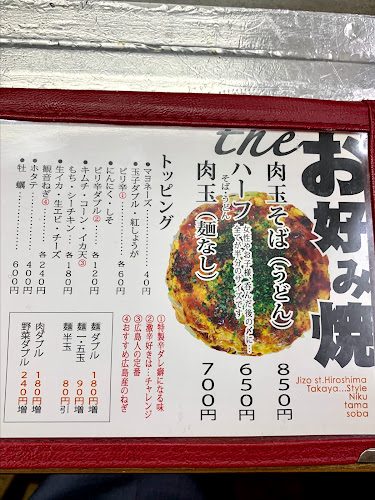 the
お好み焼
Jizo st.Hiroshima
Takaya...Style
Niku
tama
soba
肉玉そば（うどん） 850円
ハーフ そば・うどん 650円
女性やお子様、呑んだ後の〆に…
全てが半分のサイズです
肉玉（麺なし） 700円
トッピング
●マヨネーズ 40円
●玉子ダブル・紅しょうが
ピリ辛① 各60円
●にんにく・しそ
ピリ辛ダブル② 各120円
●キムチ・コーン・イカ天③
もち・シーチキン 各180円
●生イカ・生エビ・チーズ
観音ねぎ④ 各240円
●ホタテ 400円
●牡蠣 600円
①特製辛ダレ癖になる味
②激辛好きは…チャレンジ
③広島人の定番
④おすすめ広島産のねぎ
麺ダブル 180円増
麺一・五玉 90円増
麺半玉 80円引
肉ダブル 180円増
野菜ダブル 240円増